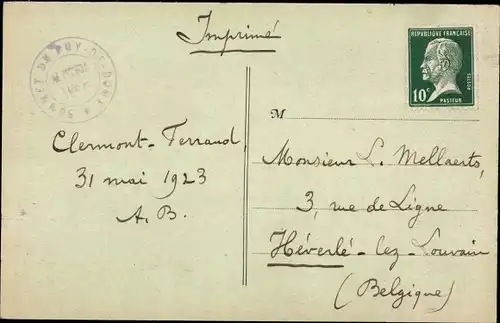 Imprimé
SOMMET DU PUY-DE-DOME
REPUBLIQUE FRANÇAISE
10c
POSTES
PASTEUR
M
Clermont-Ferrand,
31 mai 1923
A.B.
Monsieur L. Mellaerts,
3, rue de Ligne
Héverlé-lez-Louvain
(Belgique)